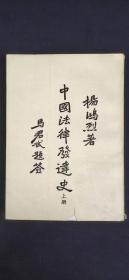 楊鴻烈著
中國法律發達史
上册
馬君武題簽